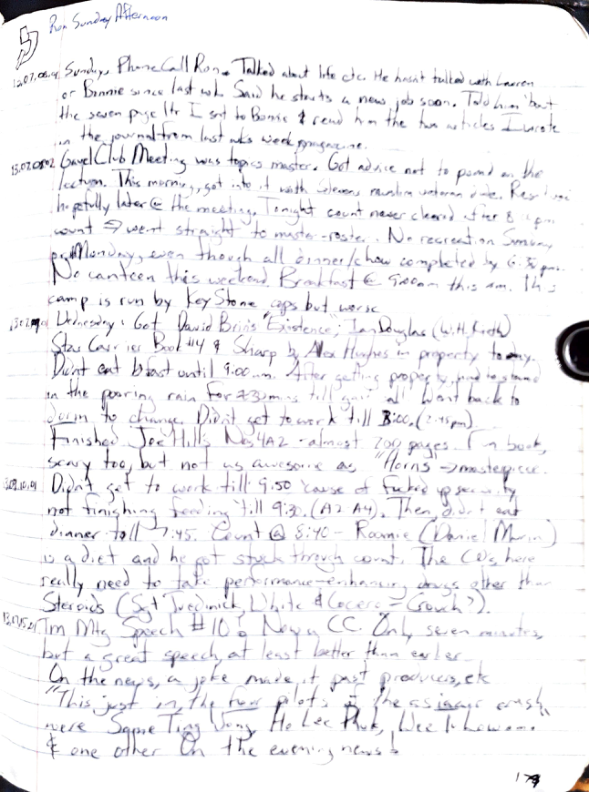 Run Sunday Afternoon
Sunday, Phone Call Ron. Talked about life etc. He hasn't talked with Lauren
or Bonnie since last wk. Said he starts a new job soon. Told him 'bout
the seven page ltr I sent to Bonnie & read him the two articles I wrote
in the journal from last wks week magazine.
Gavel Club Meeting was topics master. Got advice not to pound on the
lecturn. This morning, got into it with Stevens muslim veteran dude.
hopefully later @ the meeting. Tonight count never cleared after 8 pm
count → went straight to master-roster. No recreation Sunday
Monday, even though all dinner/chow completed by 6:30 pm.
No canteen this weekend. Breakfast @ 9:00am this am. This
camp is run by KeyStone cops but worse
Wednesday: Got David Brin's "Existence", Ian Douglas (W.H. Keith)
Star Carrier Book #4 & Sharp by Alex Hughes in property today.
Didn't eat b'fast until 9:00am. After getting property, had to stand
in the pouring rain for ≈30mins till gate Went back to
dorm to change. Didn't get to work till
Finished Joe Hill's Nos4A2 - almost 700 pages. Fun book,
scary too, but not as awesome as "Horns → masterpiece.
Didn't get to work till 9:50 'cause of fucked up security
not finishing feeding till 9:30. (A2 A4). Then didn't eat
dinner till 7:45. Count @ 8:40 - Roomie (Daniel
is a diet and he got stuck through count. The COs here
really need to take performance-enhancing drugs other than
Steroids (Sgt White &
Tm Mtg Speech #10 CC. Only seven minutes,
but a great speech, at least better than earlier
On the news, a joke made it past producers, etc
"This just in, the four pilots in the asiana crash
were Some Ting Wong, Ho Lee Phuk, Wee
& one other On the evening news!
179